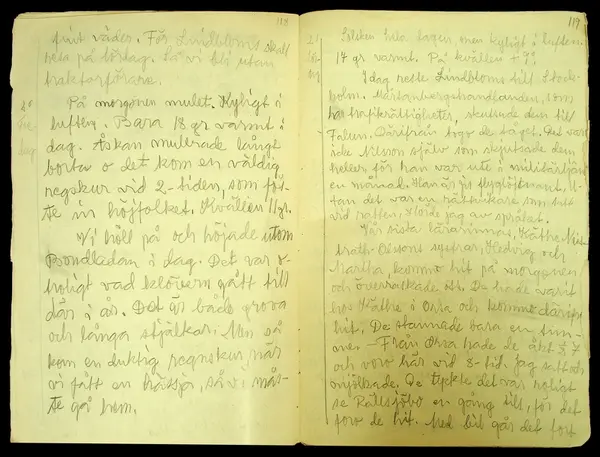 118
fint väder. För Lindbloms skall
resa på lördag. Så vi bli utan
traktorförare.
20
Fre
dag
På morgonen mulet. Kyligt i
luften. Bara 18 gr varmt i
dag. Åskan mullrade långt
borta o det kom en väldig
regskur vid 2-tiden, som för-
te in höjfolket. Kvällen 11 gr.
Vi höll på och höjade utom
i dag. Det var o-
troligt vad klövern gått till
där i år. Det är både grova
och långa stjälkar. Men så
kom en duktig regnskur, när
vi fått en hässja, så vi mås-
te gå hem.
119
21
lö
Solsken hela dagen, men kyligt i luften.
17 gr varmt. På kvällen + 9°
I dag reste Lindbloms till Stock-
holm. som
har trafikrättigheter, skjutsade dem till
Falun. Därifrån togo de tåget. Det var
icke Nilsson själv som skjutsade dem
heller, för han var ute i militärtjänst
en månad. Han är ju flyglöjtnant. U-
tan det var en rättvikare som satt
vid ratten, hörde jag av språket.
Vår sista lärarinna, Käthe
Olssons systrar, Hedvig och
Martha, kommo hit på morgonen
och överraskade oss. De hade varit
hos Käthe i Orsa och kommo därifrån
hit. De stannade bara en tim-
me. Från Orsa hade de åkt ½ 7
och voro här vid 8-tid. Jag satt och
mjölkade. De tyckte det var roligt
se Rättsjöbo en gång till, för det
foro de hit. Med bil går det fort